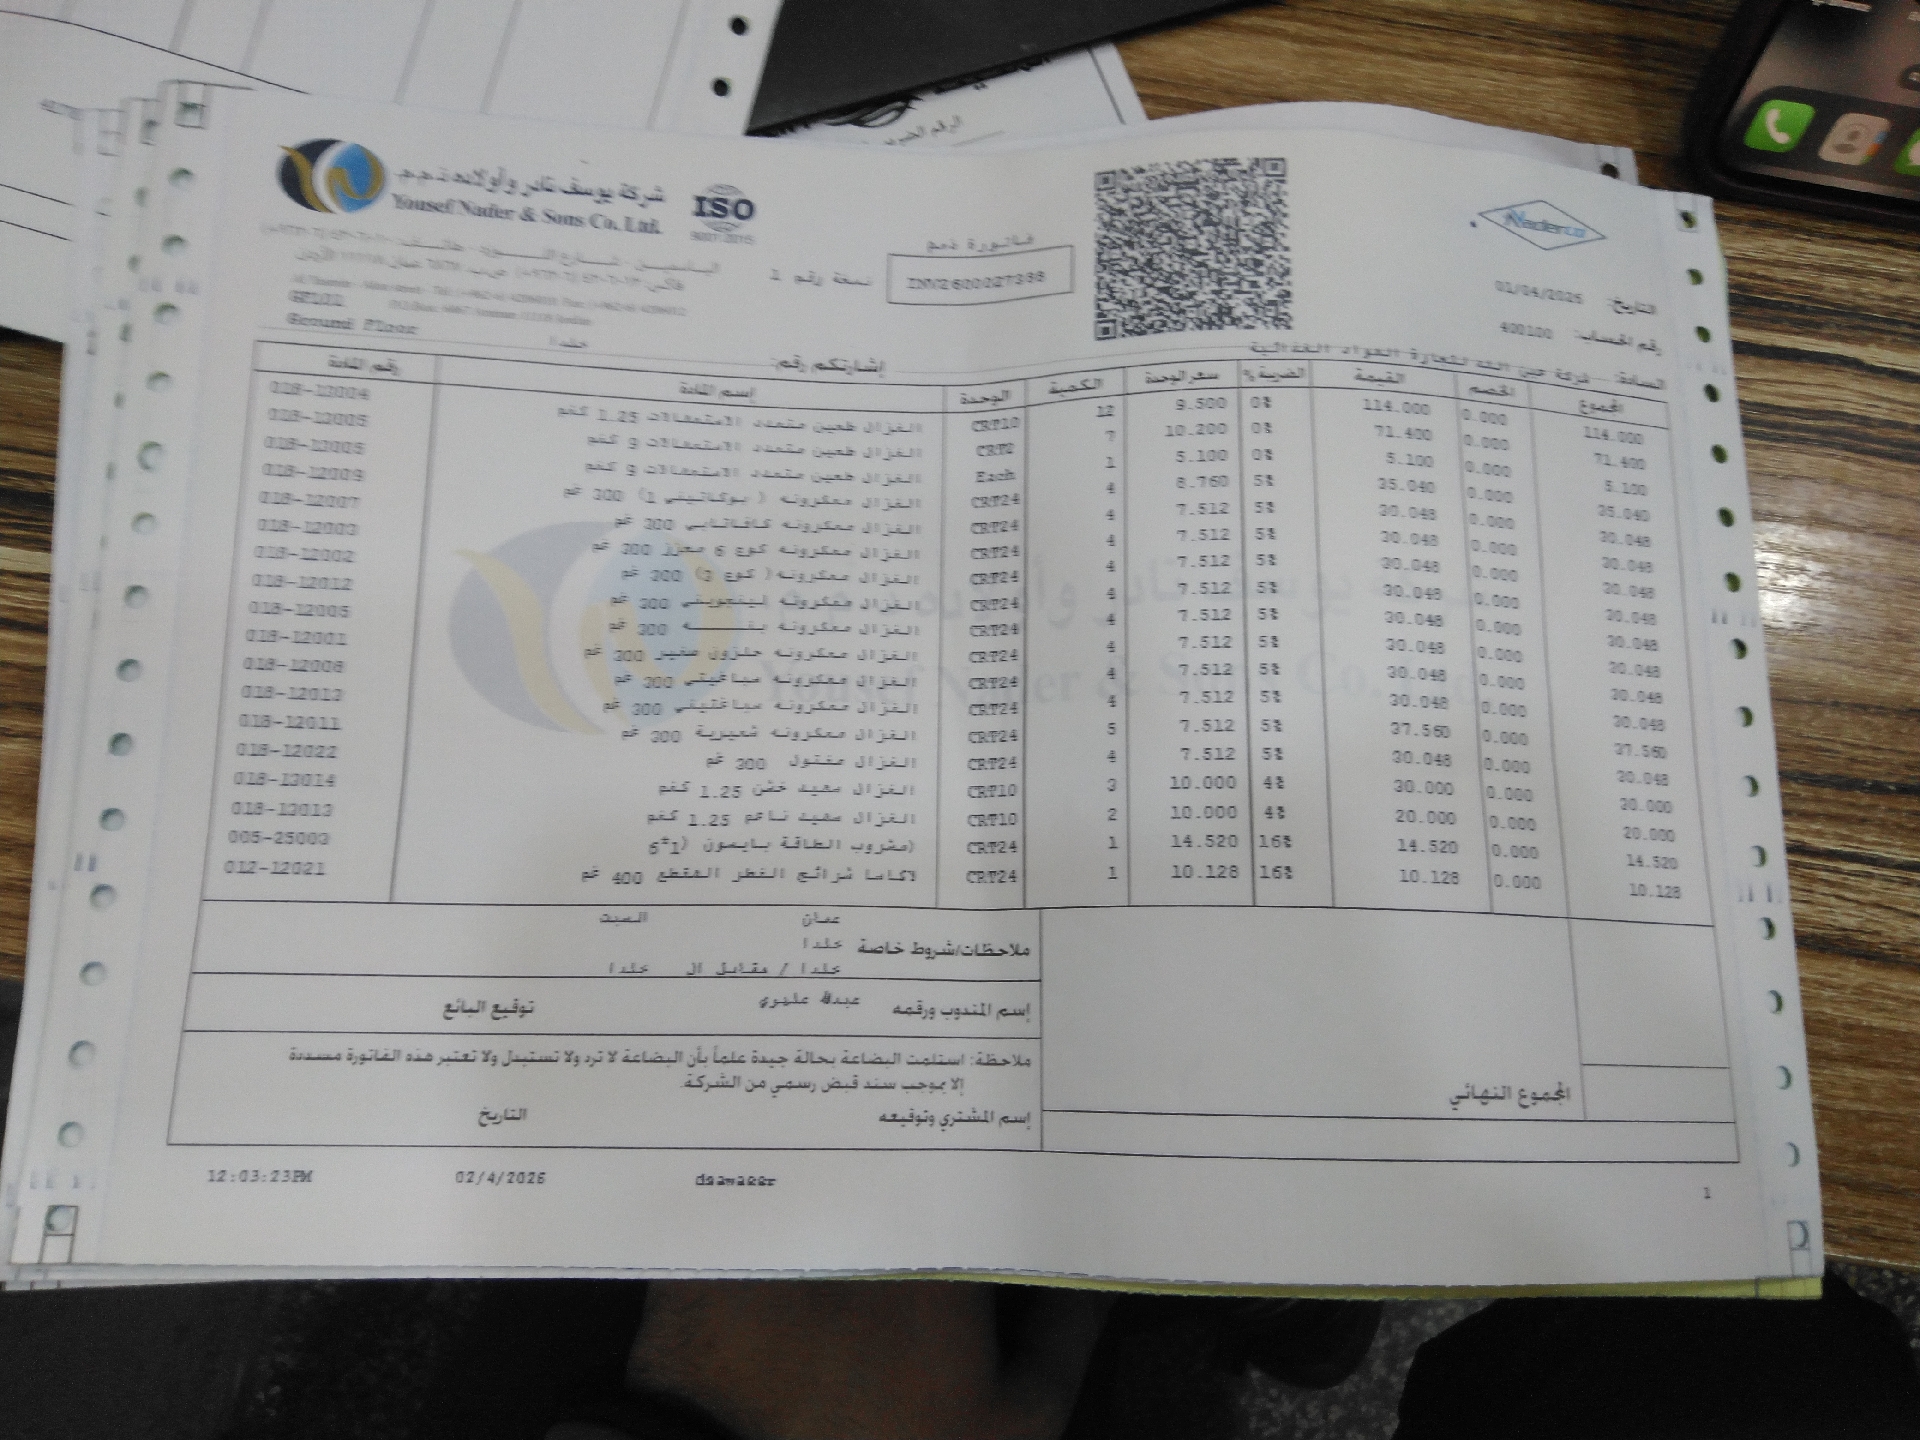 شركة يوسف نادر وأولاده ذ.م.م.
Yousef Nader & Sons Co. Ltd.
ISO
9001:2015
Naderco
فاتورة ذمم
INV2600027388
نسخة رقم 1
التاريخ: 01/04/2026
رقم الحساب: 400100
GF101
Ground Floor
خلدا
السادة: شركة عين الله لتجارة المواد الغذائية
إشارتكم رقم:
رقم المادة إسم المادة الوحدة الكمية سعر الوحدة الضريبة % القيمة الخصم المجموع
018-13004 الغزال طحين متعدد الاستعمالات 1.25 كغم CRT10 12 9.500 0% 114.000 0.000 114.000
الغزال طحين متعدد الاستعمالات 9 كغم CRT2 7 10.200 0% 71.400 0.000 71.400
الغزال طحين متعدد الاستعمالات 9 كغم Each 1 5.100 0% 5.100 0.000 5.100
018-12009 الغزال معكرونه ( بوكاتيني 1) 300 غم CRT24 4 8.760 5% 35.040 0.000 35.040
018-12007 الغزال معكرونه كافاتابي 300 غم CRT24 4 7.512 5% 30.048 0.000 30.048
018-12003 الغزال معكرونه كوع 6 معزز 300 غم CRT24 4 7.512 5% 30.048 0.000 30.048
018-12002 الغزال معكرونه ( كوع 3) 300 غم CRT24 4 7.512 5% 30.048 0.000 30.048
018-12012 الغزال معكرونه لينغويني 300 غم CRT24 4 7.512 5% 30.048 0.000 30.048
018-12005 الغزال معكرونه 300 غم CRT24 4 7.512 5% 30.048 0.000 30.048
018-12001 الغزال معكرونه حلزون صغير 300 غم CRT24 4 7.512 5% 30.048 0.000 30.048
018-12008 الغزال معكرونه سباغيتي 300 غم CRT24 4 7.512 5% 30.048 0.000 30.048
018-12013 الغزال معكرونه سباغتيني 300 غم CRT24 4 7.512 5% 30.048 0.000 30.048
018-12011 الغزال معكرونه شعيرية 300 غم CRT24 5 7.512 5% 37.560 0.000 37.560
018-12022 الغزال مفتول 300 غم CRT24 4 7.512 5% 30.048 0.000 30.048
018-13014 الغزال سميد خشن 1.25 كغم CRT10 3 10.000 4% 30.000 0.000 30.000
018-13013 الغزال سميد ناعم 1.25 كغم CRT10 2 10.000 4% 20.000 0.000 20.000
005-25003 مشروب الطاقة بايسون (1*6) CRT24 1 14.520 16% 14.520 0.000 14.520
012-12021 لاكاسا شرائح الفطر المقطع 400 غم CRT24 1 10.128 16% 10.128 0.000 10.128
عمان السبت
ملاحظات/شروط خاصة خلدا
خلدا / مقابل ال خلدا
إسم المندوب ورقمه توقيع البائع
ملاحظة: استلمت البضاعة بحالة جيدة علماً بأن البضاعة لا ترد ولا تستبدل ولا تعتبر هذه الفاتورة مسددة
إلا بموجب سند قبض رسمي من الشركة.
المجموع النهائي
إسم المشتري وتوقيعه التاريخ
12:03:23PM 02/4/2026 1